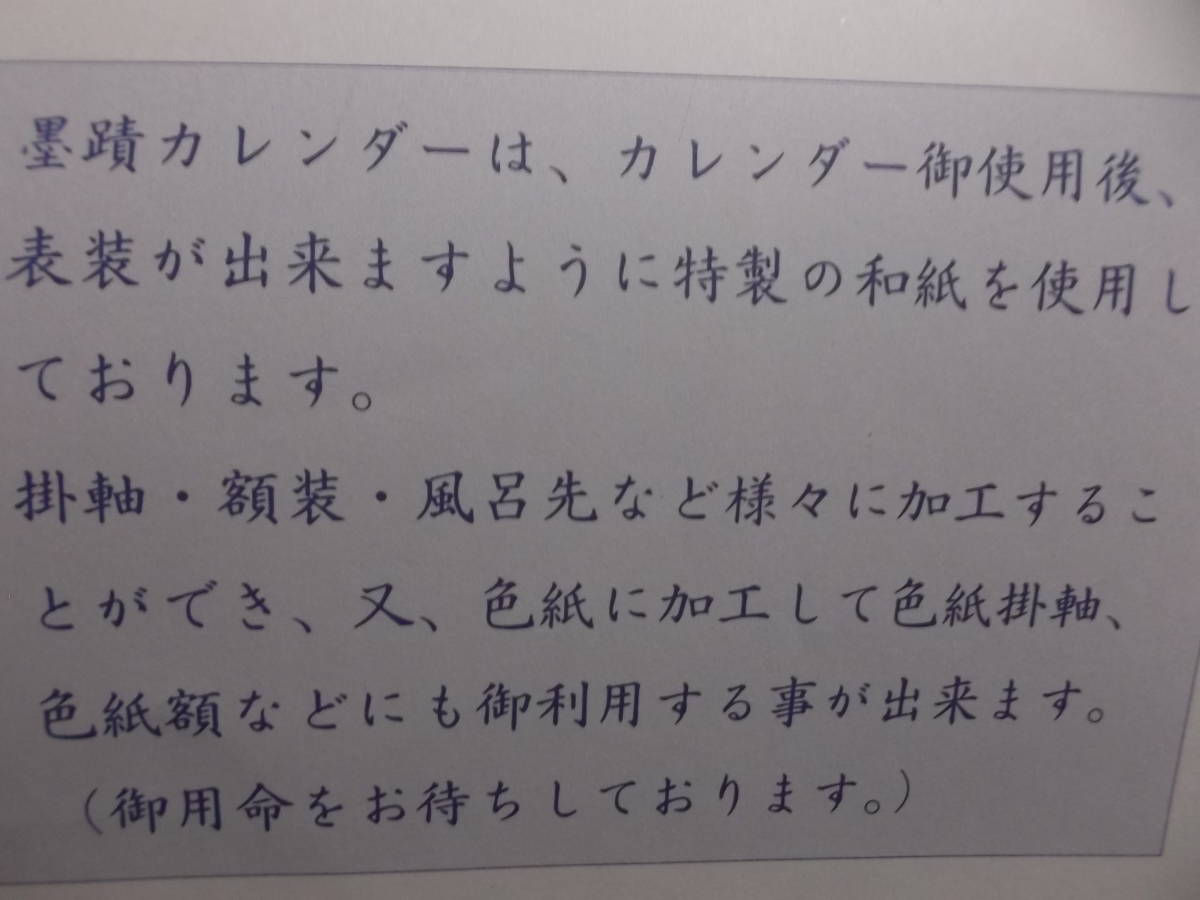 墨蹟カレンダーは、カレンダー御使用後、
表装が出来ますように特製の和紙を使用し
ております。
掛軸・額装・風呂先など様々に加工するこ
とができ、又、色紙に加工して色紙掛軸、
色紙額などにも御利用する事が出来ます。
（御用命をお待ちしております。）